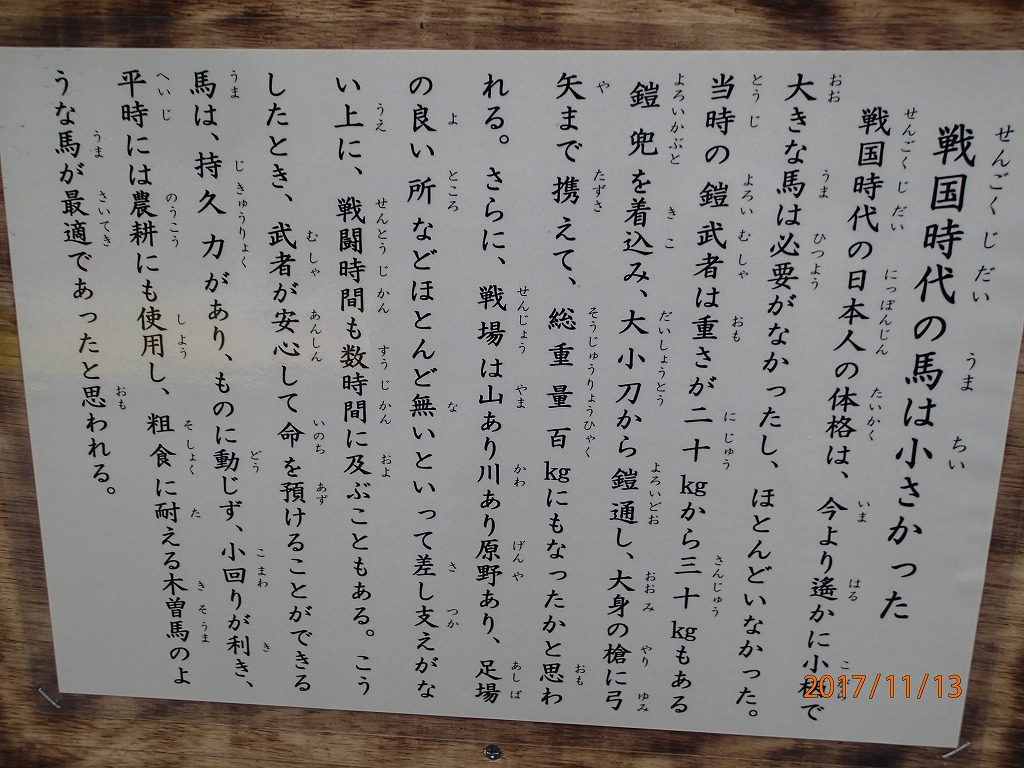 戦国時代の馬は小さかった
戦国時代の日本人の体格は、今より遙かに小柄で
大きな馬は必要がなかったし、ほとんどいなかった。
当時の鎧武者は重さが二十kgから三十kgもある
鎧兜を着込み、大小刀から鎧通し、大身の槍に弓
矢まで携えて、総重量百kgにもなったかと思わ
れる。さらに、戦場は山あり川あり原野あり、足場
の良い所などほとんど無いといって差し支えがな
い上に、戦闘時間も数時間に及ぶこともある。こう
したとき、武者が安心して命を預けることができる
馬は、持久力があり、ものに動じず、小回りが利き、
平時には農耕にも使用し、粗食に耐える木曽馬のよ
うな馬が最適であったと思われる。
2017/11/13